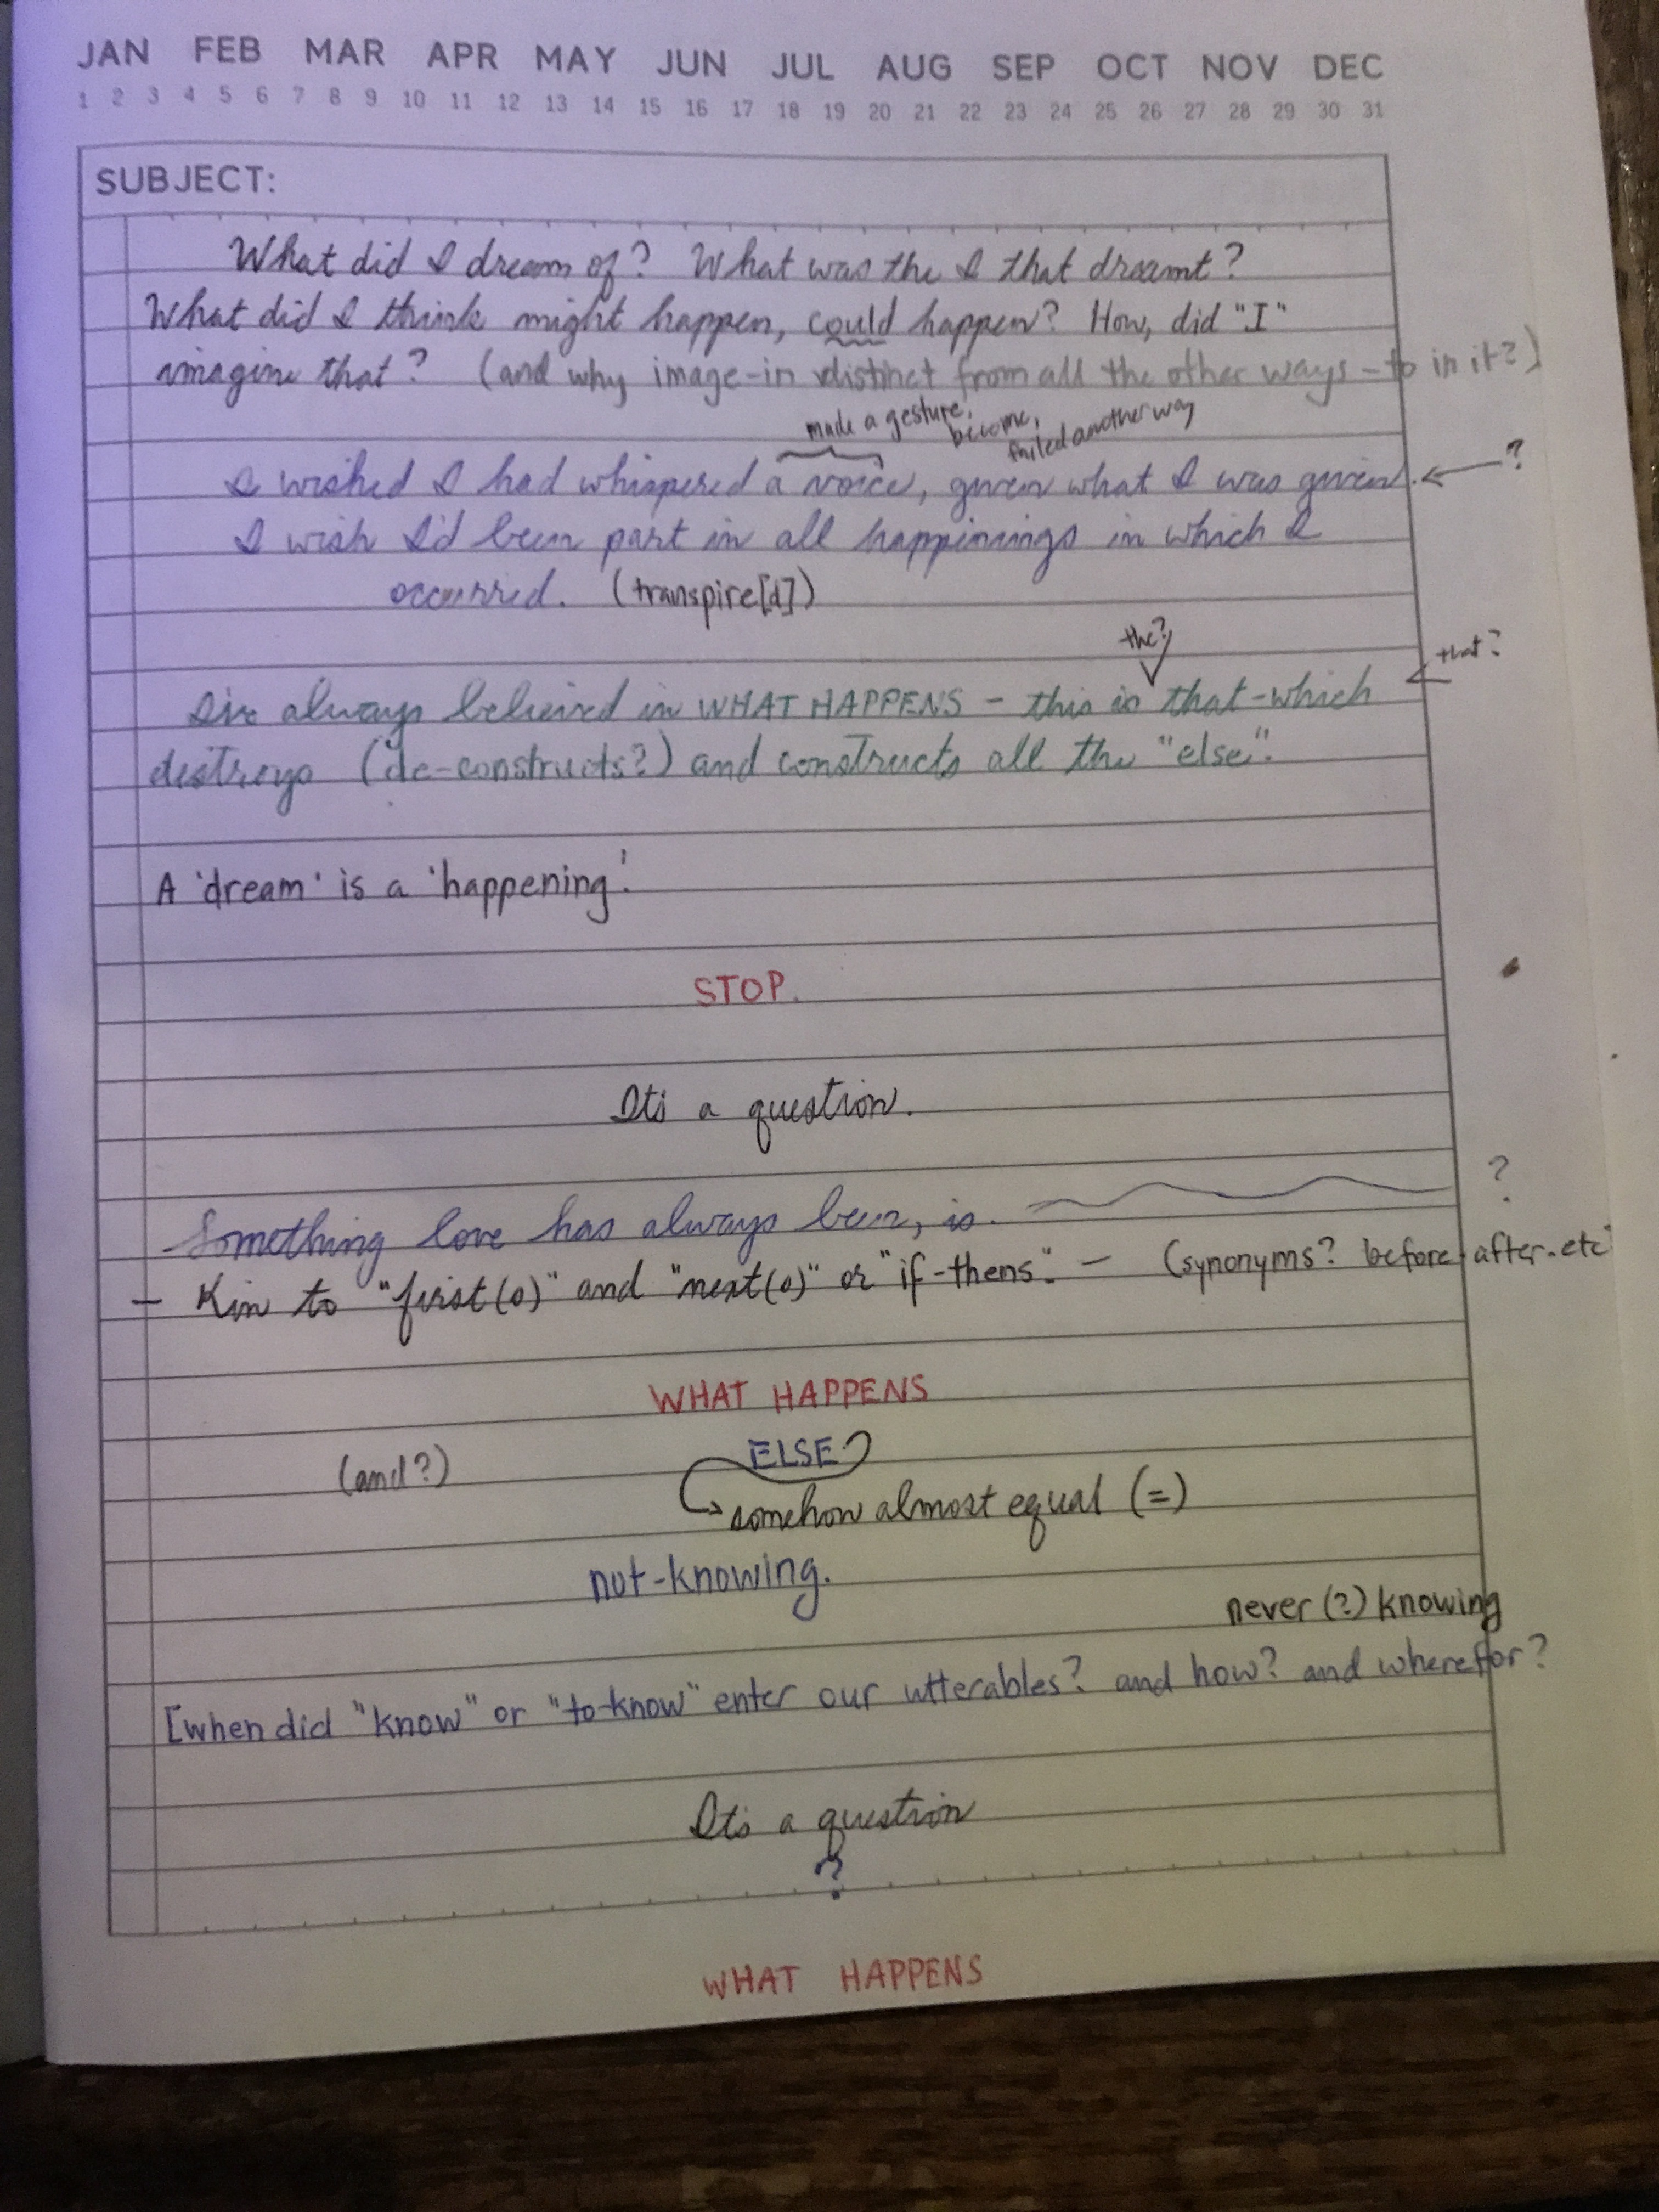 JAN FEB MAR APR MAY JUN JUL AUG SEP OCT NOV DEC
1 2 3 4 5 6 7 8 9 10 11 12 13 14 15 16 17 18 19 20 21 22 23 24 25 26 27 28 29 30 31
SUBJECT:
What did I dream of? What was the I that dreamt?
What did I think might happen, could happen? How, did "I"
imagine that? (and why image-in distinct from all the other ways - to in it?)
made a gesture,
become,
failed another way
I wished I had whispered a voice, given what I was given. ← ?
I wish I'd been part in all happinings in which I
occurred. (transpire[d])
the?
that?
I've always believed in WHAT HAPPENS - this is that-which
destroys (de-constructs?) and constructs all the "else".
A 'dream' is a 'happening'.
STOP.
Its a question.
Something love has always been, is. ?
- Kin to "first(s)" and "next(s)" or "if-thens". - (synonyms? before, after. etc
WHAT HAPPENS
(and?) ELSE
→ somehow almost equal (=)
not-knowing.
never (?) knowing
[when did "know" or "to-know" enter our utterables? and how? and wherefor?
Its a question
?
WHAT HAPPENS